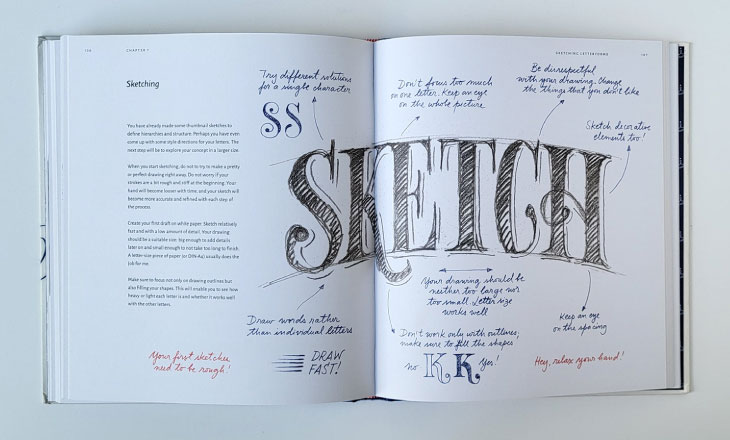 CHAPTER 1
Sketching
You have already made some thumbnail sketches to
define hierarchies and structure. Perhaps you have even
some up with some style directions for your letters. The
next step will be to explore your concept in a larger size.
When you start sketching, do not try to make a pretty
or perfect drawing right away. Do not worry if your
strokes are a bit rough and stiff at the beginning. Your
hand will become looser with time, and your sketch will
become more accurate and refined with each step of
the process.
Create your first draft on white paper. Sketch relatively
fast and with a low amount of detail. Your drawing
should be a suitable size: big enough to add details
later on and small enough to not take too long to finish.
A letter-size piece of paper (or DIN-A4) usually does the
job for me.
Make sure to focus not only on drawing outlines but
also filling your shapes. This will enable you to see how
heavy or light each letter is and whether it works well
with the other letters.
Your first sketches
need to be rough!
Try different solutions
for a single character
SS
SKETCH
Draw words rather
than individual letters
DRAW
FAST!
SKETCHING LETTERFORMS
Don't focus too much
on one letter. Keep an eye
on the whole picture
Be disrespectful
with your drawing. Change
the things that you don't like
Sketch decorative
elements too!
Your drawing should be
neither too large nor
too small. Letter size
works well
Keep an eye
on the spacing
Don't work only with outlines;
make sure to fill the shapes
no K K Yes!
Hey, relax your hand!